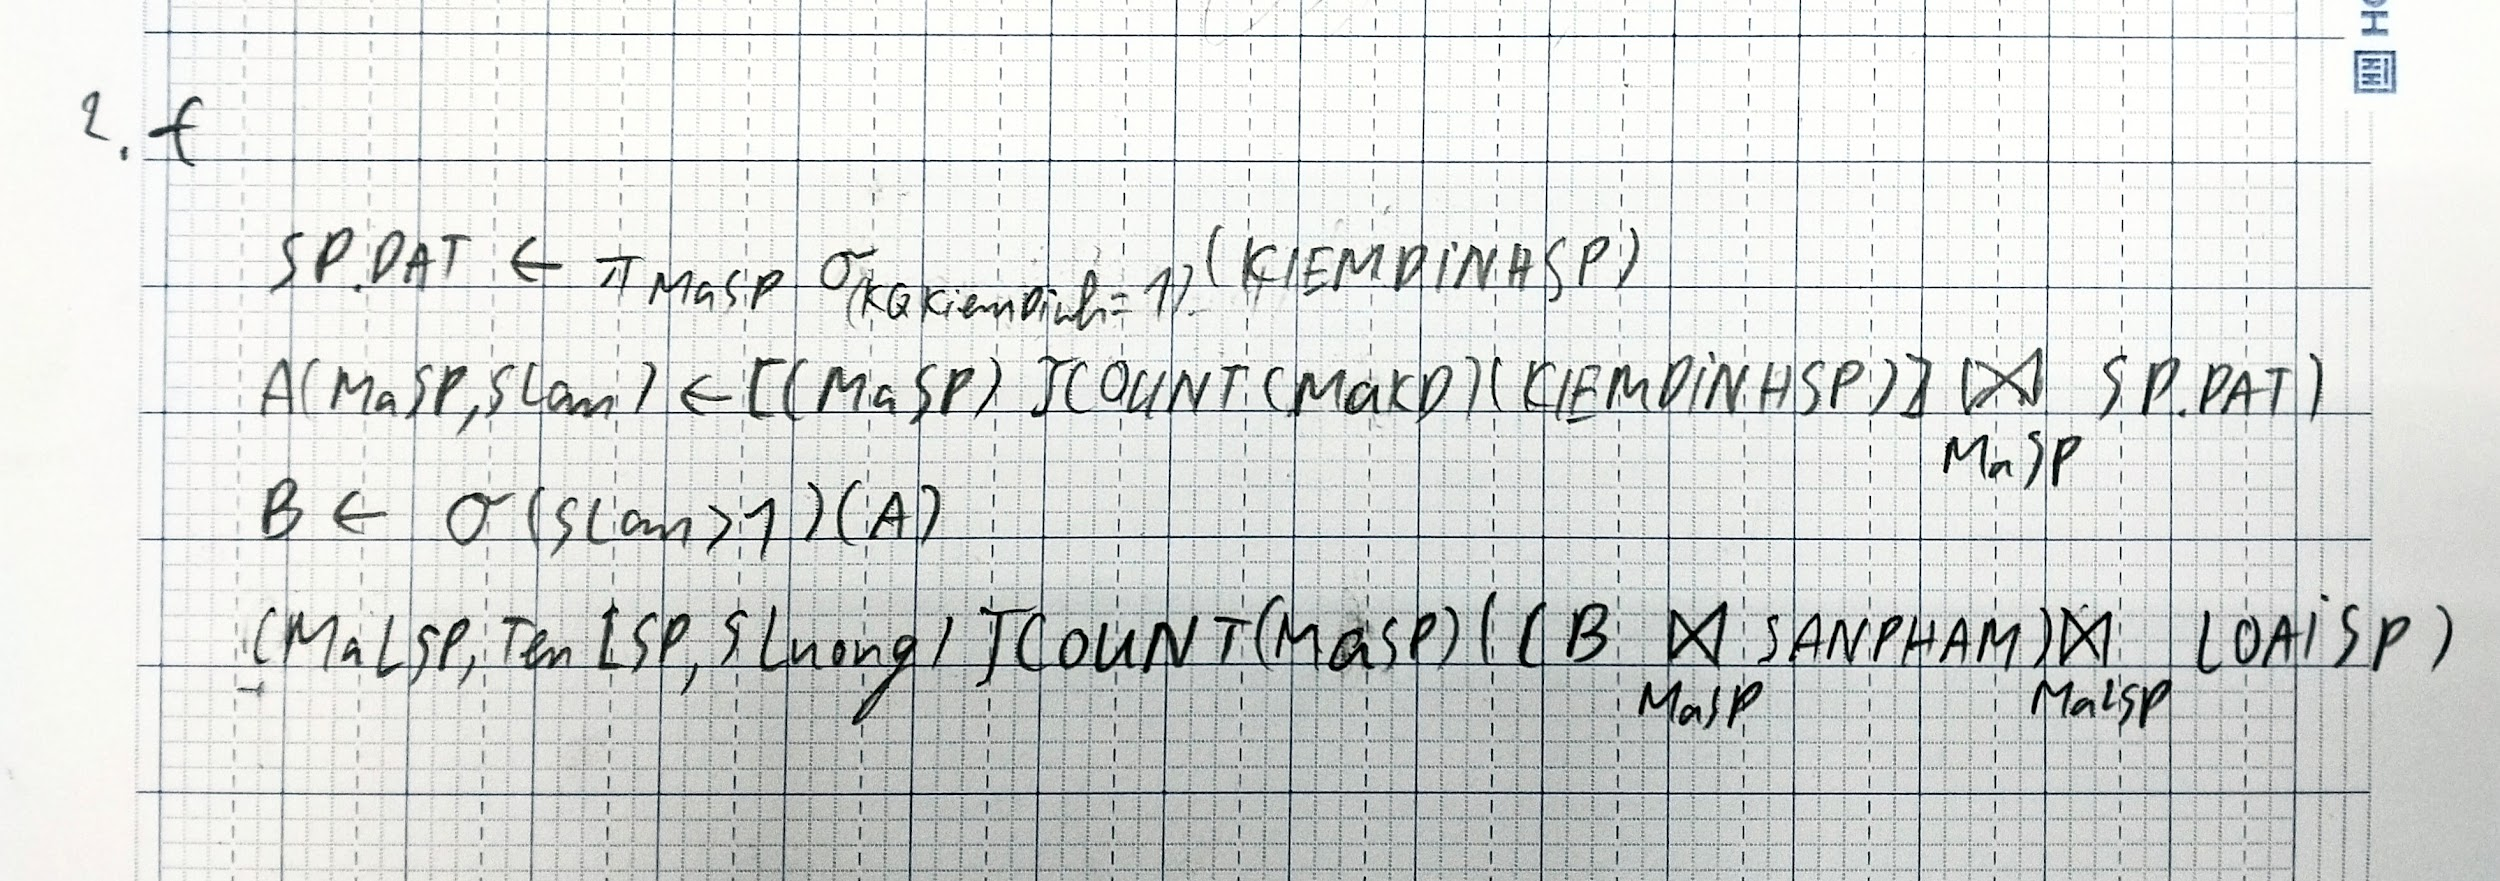 2.f
SP.DAT ← π MaSP σ(KQKiemDinh=1)(KIEMDiNHSP)
A(MaSP,SLan) ← [(MaSP) ℑCOUNT(MaKD)(KIEMDiNHSP)] (⋈ MaSP SP.DAT)
B ← σ(SLan>1)(A)
(MaLSP, TenLSP, SLuong) ℑCOUNT(MaSP)((B ⋈ MaSP SANPHAM) ⋈ MaLSP LOAiSP)